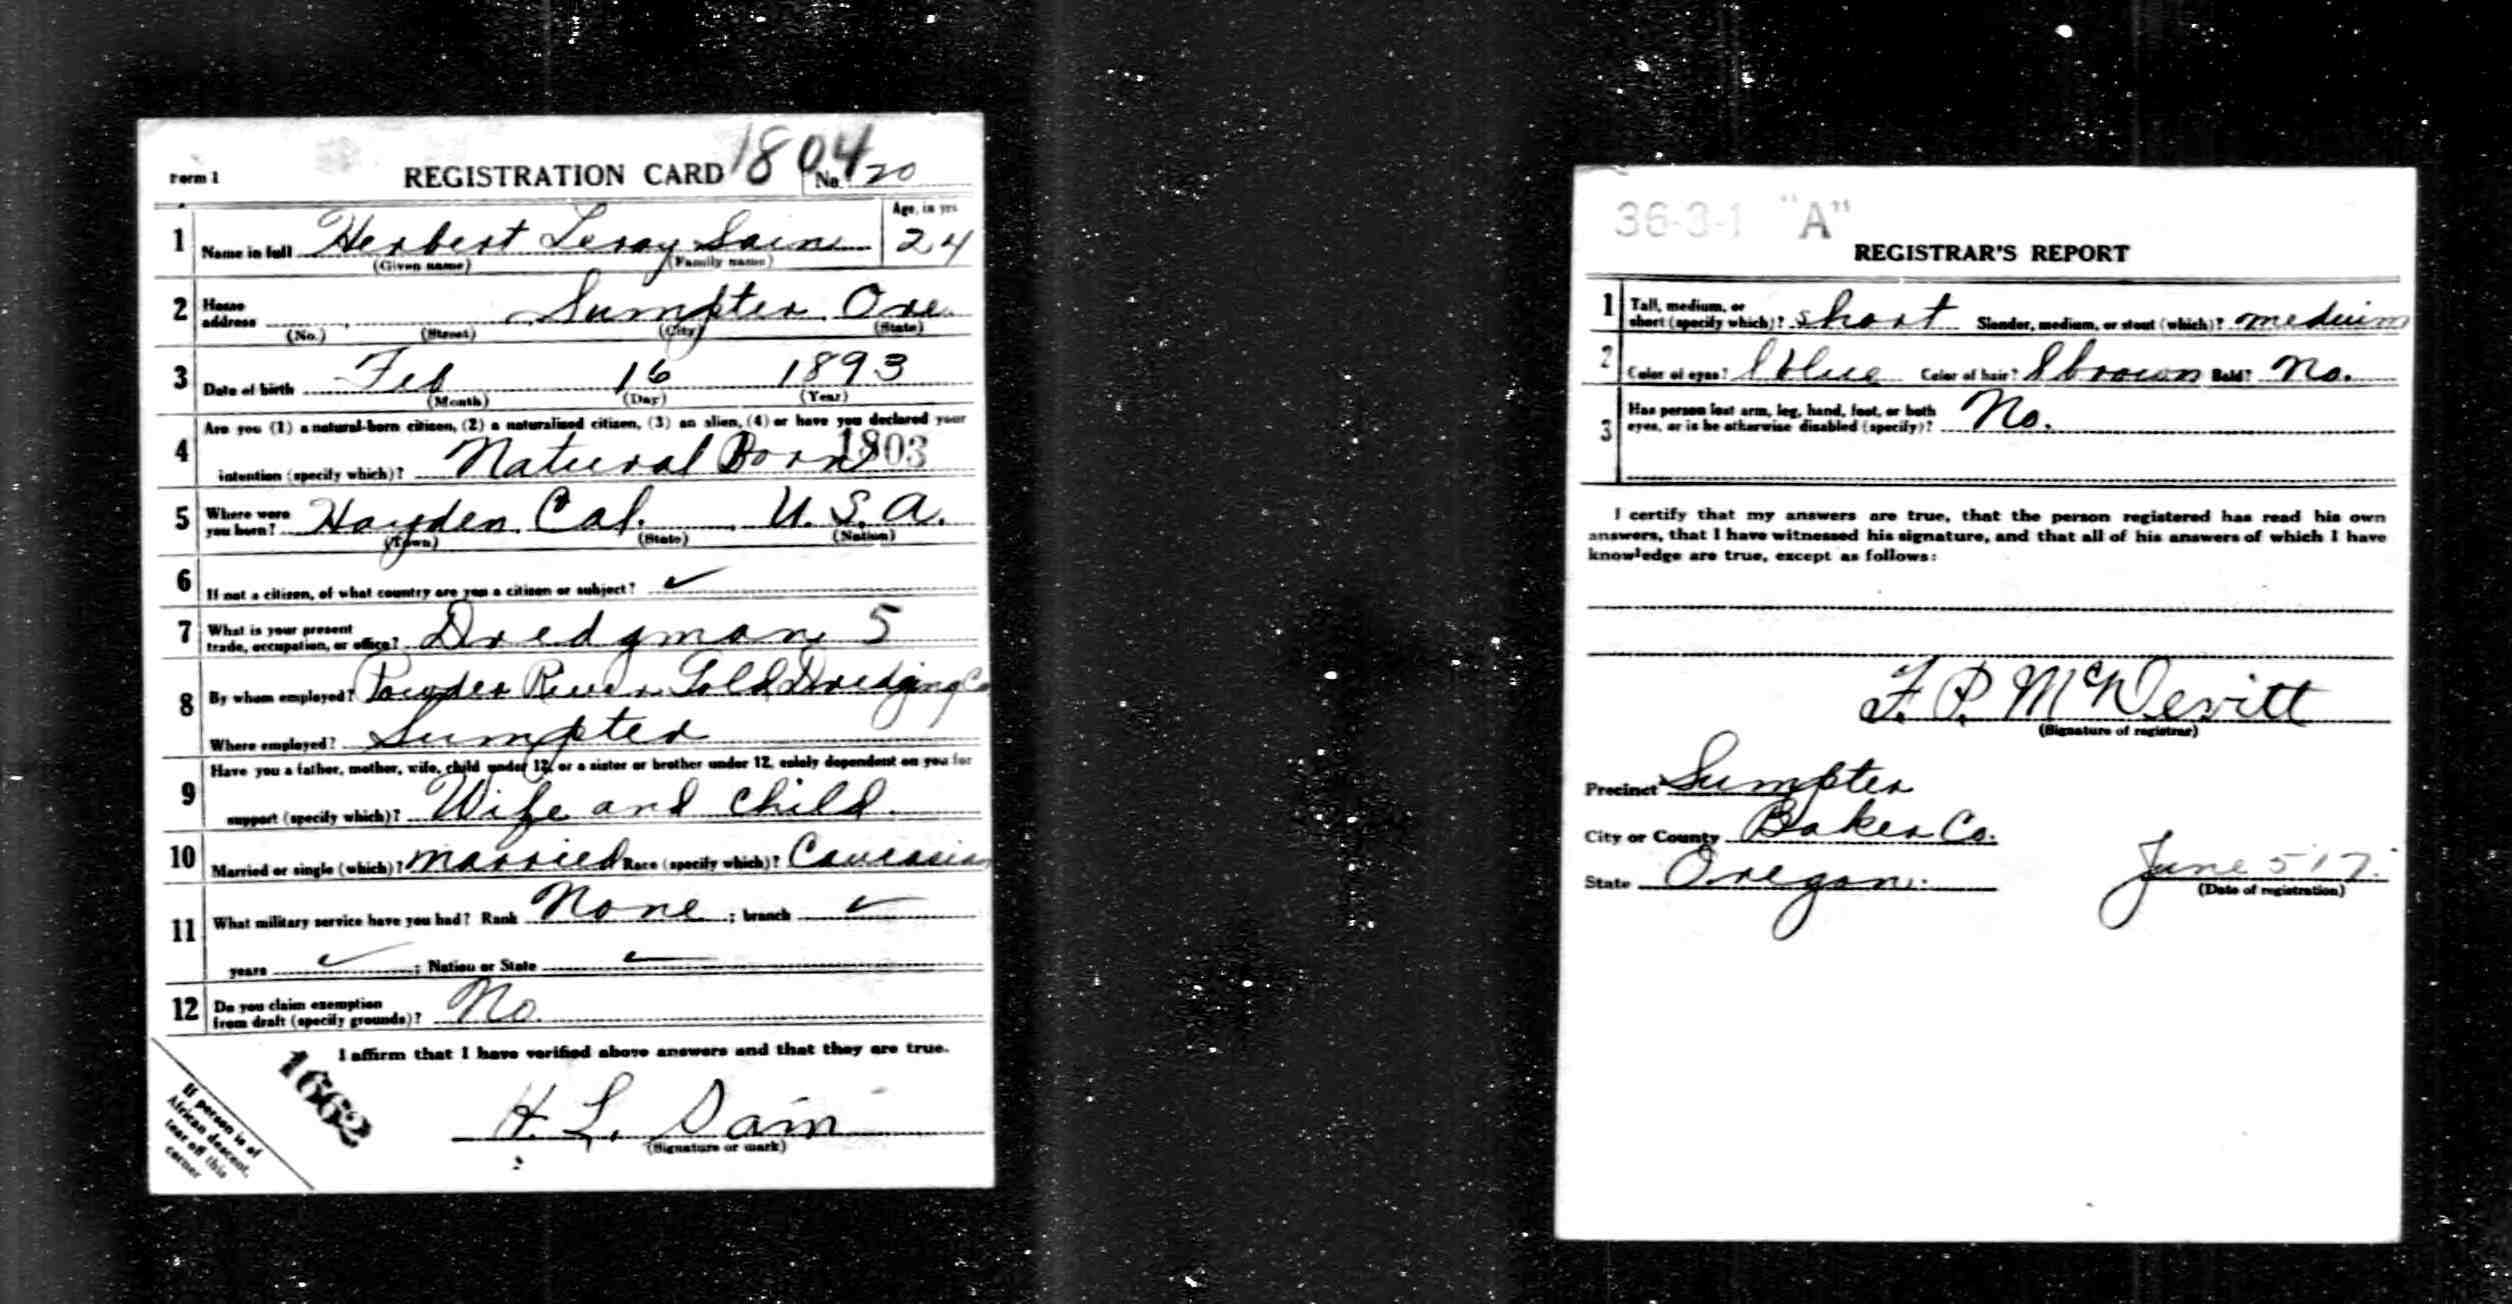 1804
Form 1 REGISTRATION CARD No. 120
1 Name in full Herbert Leroy Sain Age, in yrs 24
(Given name) (Family name)
2 Home address Sumpter Ore.
(No.) (Street) (City) (State)
3 Date of birth Feb 16 1893
(Month) (Day) (Year)
4 Are you (1) a natural-born citizen, (2) a naturalized citizen, (3) an alien, (4) or have you declared your
intention (specify which)? Natural Born 1803
5 Where were you born? Hayden Cal. U.S.A.
(Town) (State) (Nation)
6 If not a citizen, of what country are you a citizen or subject? ✓
7 What is your present trade, occupation, or office? Dredgman 5
8 By whom employed? Powder River Gold Dredging Co
Where employed? Sumpter
9 Have you a father, mother, wife, child under 12, or a sister or brother under 12, solely dependent on you for
support (specify which)? Wife and child
10 Married or single (which)? married Race (specify which)? Caucasian
11 What military service have you had? Rank None ; branch ✓
years ✓ ; Nation or State ✓
12 Do you claim exemption
from draft (specify grounds)? No.
I affirm that I have verified above answers and that they are true.
1662
H. L. Sain
(Signature or mark)
If person is of
African descent,
tear off this
corner
36-3-1 "A"
REGISTRAR'S REPORT
1 Tall, medium, or
short (specify which)? short Slender, medium, or stout (which)? medium
2 Color of eyes? l blue Color of hair? l brown Bald? No.
3 Has person lost arm, leg, hand, foot, or both
eyes, or is he otherwise disabled (specify)? No.
I certify that my answers are true, that the person registered has read his own
answers, that I have witnessed his signature, and that all of his answers of which I have
knowledge are true, except as follows:
F. P. McDevitt
(Signature of registrar)
Precinct Sumpter
City or County Baker Co.
State Oregon. June 5 '17.
(Date of registration)